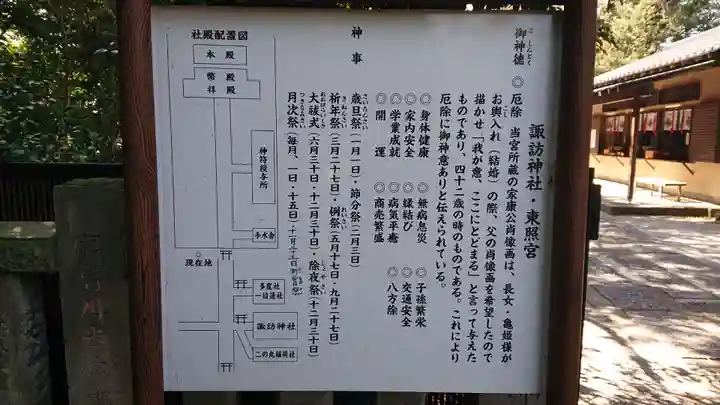 諏訪神社・東照宮
御神徳
ごしんとく
◎厄除 当宮所蔵の家康公肖像画は、長女・亀姫様が
お輿入れ(結婚)の際、父の肖像画を希望したので
こし
描かせ「我が意、ここにとどまる」と言って与えた
ものであり、四十二歳の時のものである。これにより
厄除に御神意ありと伝えられている。
◎身体健康 ◎無病息災 ◎子孫繁栄
◎家内安全 ◎縁結び ◎交通安全
◎学業成就 ◎病気平癒 ◎八方除
◎開運 ◎商売繁盛
神事
歳旦祭(一月一日)・節分祭(二月三日)
さいたんさい
祈年祭(三月二十七日)・例祭(五月十七日・九月二十七日)
きねんさい
れいさい
大祓式(六月三十日・十二月三十日)・除夜祭(十二月三十日)
おおはらいしき
じょやさい
月次祭(毎月、一日・十五日)
つきなみさい
社殿配置図
本殿
幣殿
拝殿
神符授与所
手水舎
現在地
多度社
諏訪神社
二の丸稲荷社